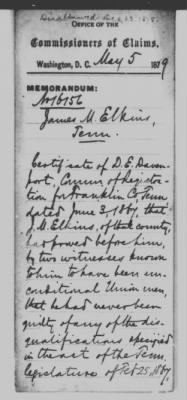 Disallowed Dec
OFFICE OF THE
Commissioners of Claims,
Washington, D. C. May 5 1879
MEMORANDUM:
No 16156
James M. Elkins,
Tenn.
Certificate of D. E. Daven-
port, Commr of Registra-
tion for Franklin Co, Tenn
dated June 3, 1867, that
J. M. Elkins, of that county,
had proved before him,
by two witnesses known
to him to have been un-
conditional Union men,
that he had never been
guilty of any of the dis-
qualifications specified
in the act of the Tenn.
legislature of Feb 25, 1867.